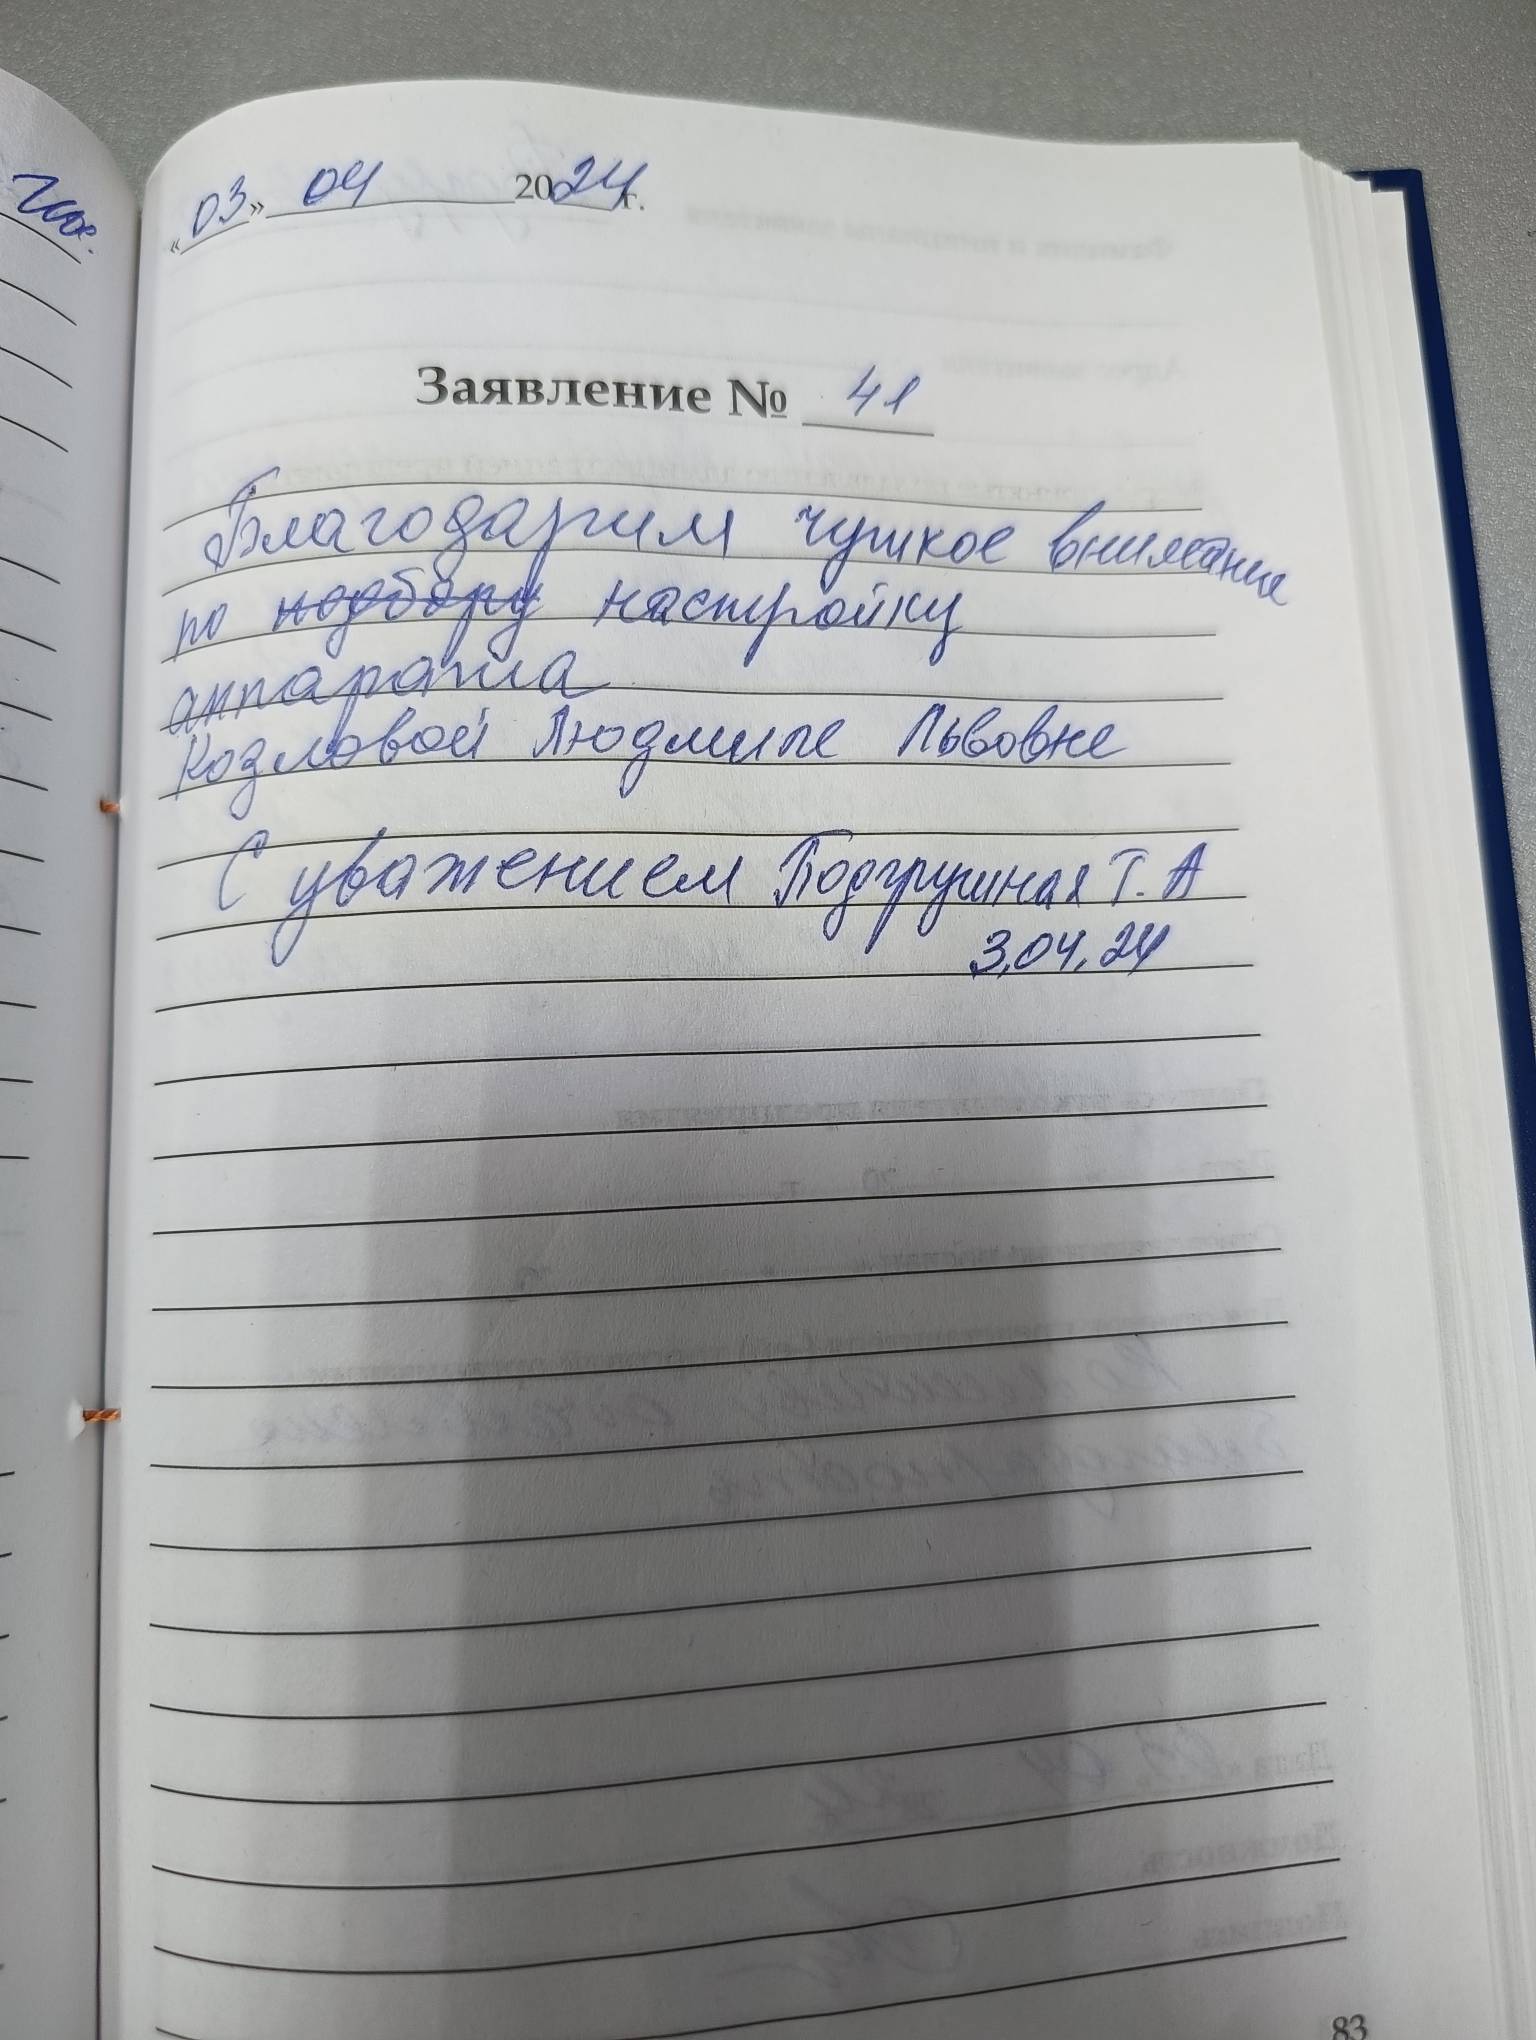 «03» 04 2024 г.
Заявление № 41
Благодарим чуткое внимание
по подбору настройку
аппарата
Козловой Людмиле Львовне
С уважением Подгрушная Т. А
3.04.24
83